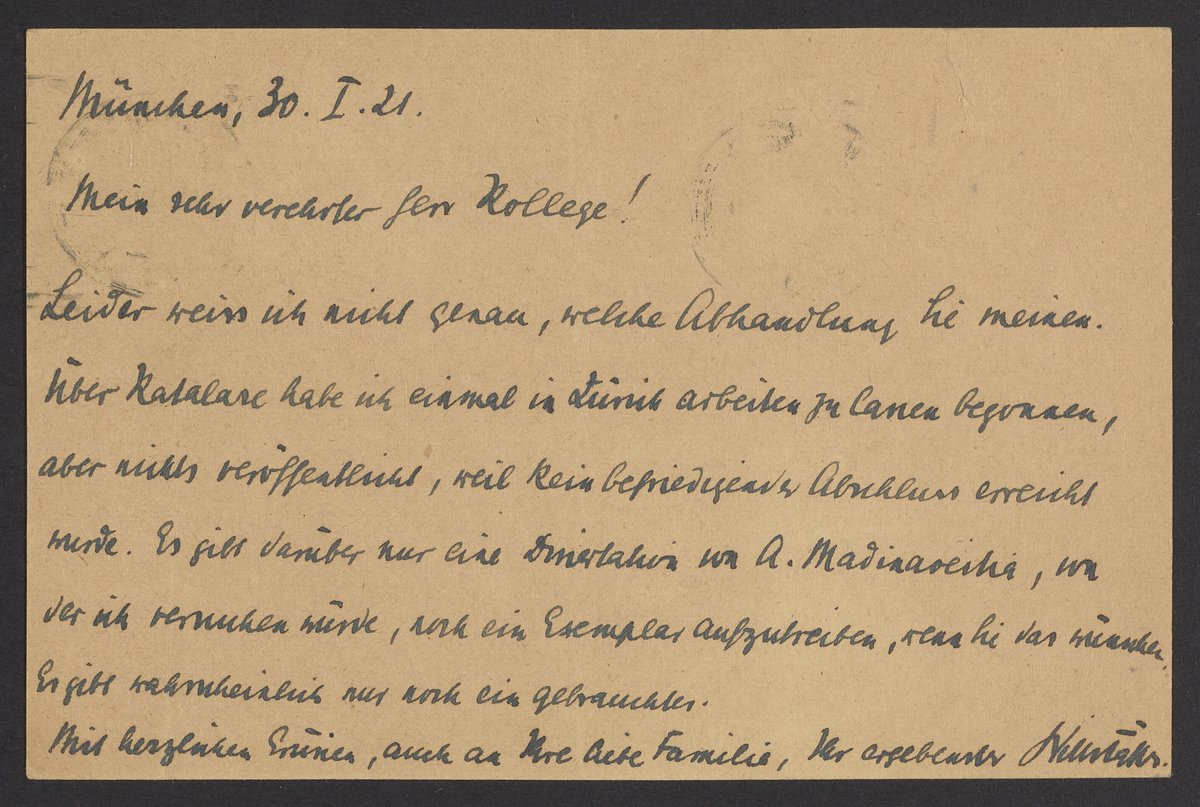 München, 30. I. 21.
Mein sehr verehrter Herr Kollege!
Leider weiss ich nicht genau, welche Abhandlung Sie meinen.
Über Katalase habe ich einmal in Zürich arbeiten zu lassen begonnen,
aber nichts veröffentlicht, weil kein befriedigender Abschluss erreicht
wurde. Es gibt darüber nur eine Dissertation von A. Madinaveitia, von
der ich versuchen würde, noch ein Exemplar aufzutreiben, wenn Sie das wünschen.
Es gibt wahrscheinlich nur noch ein gebrauchtes.
Mit herzlichen Grüssen, auch an Ihre liebe Familie, Ihr ergebenster Willstätter.